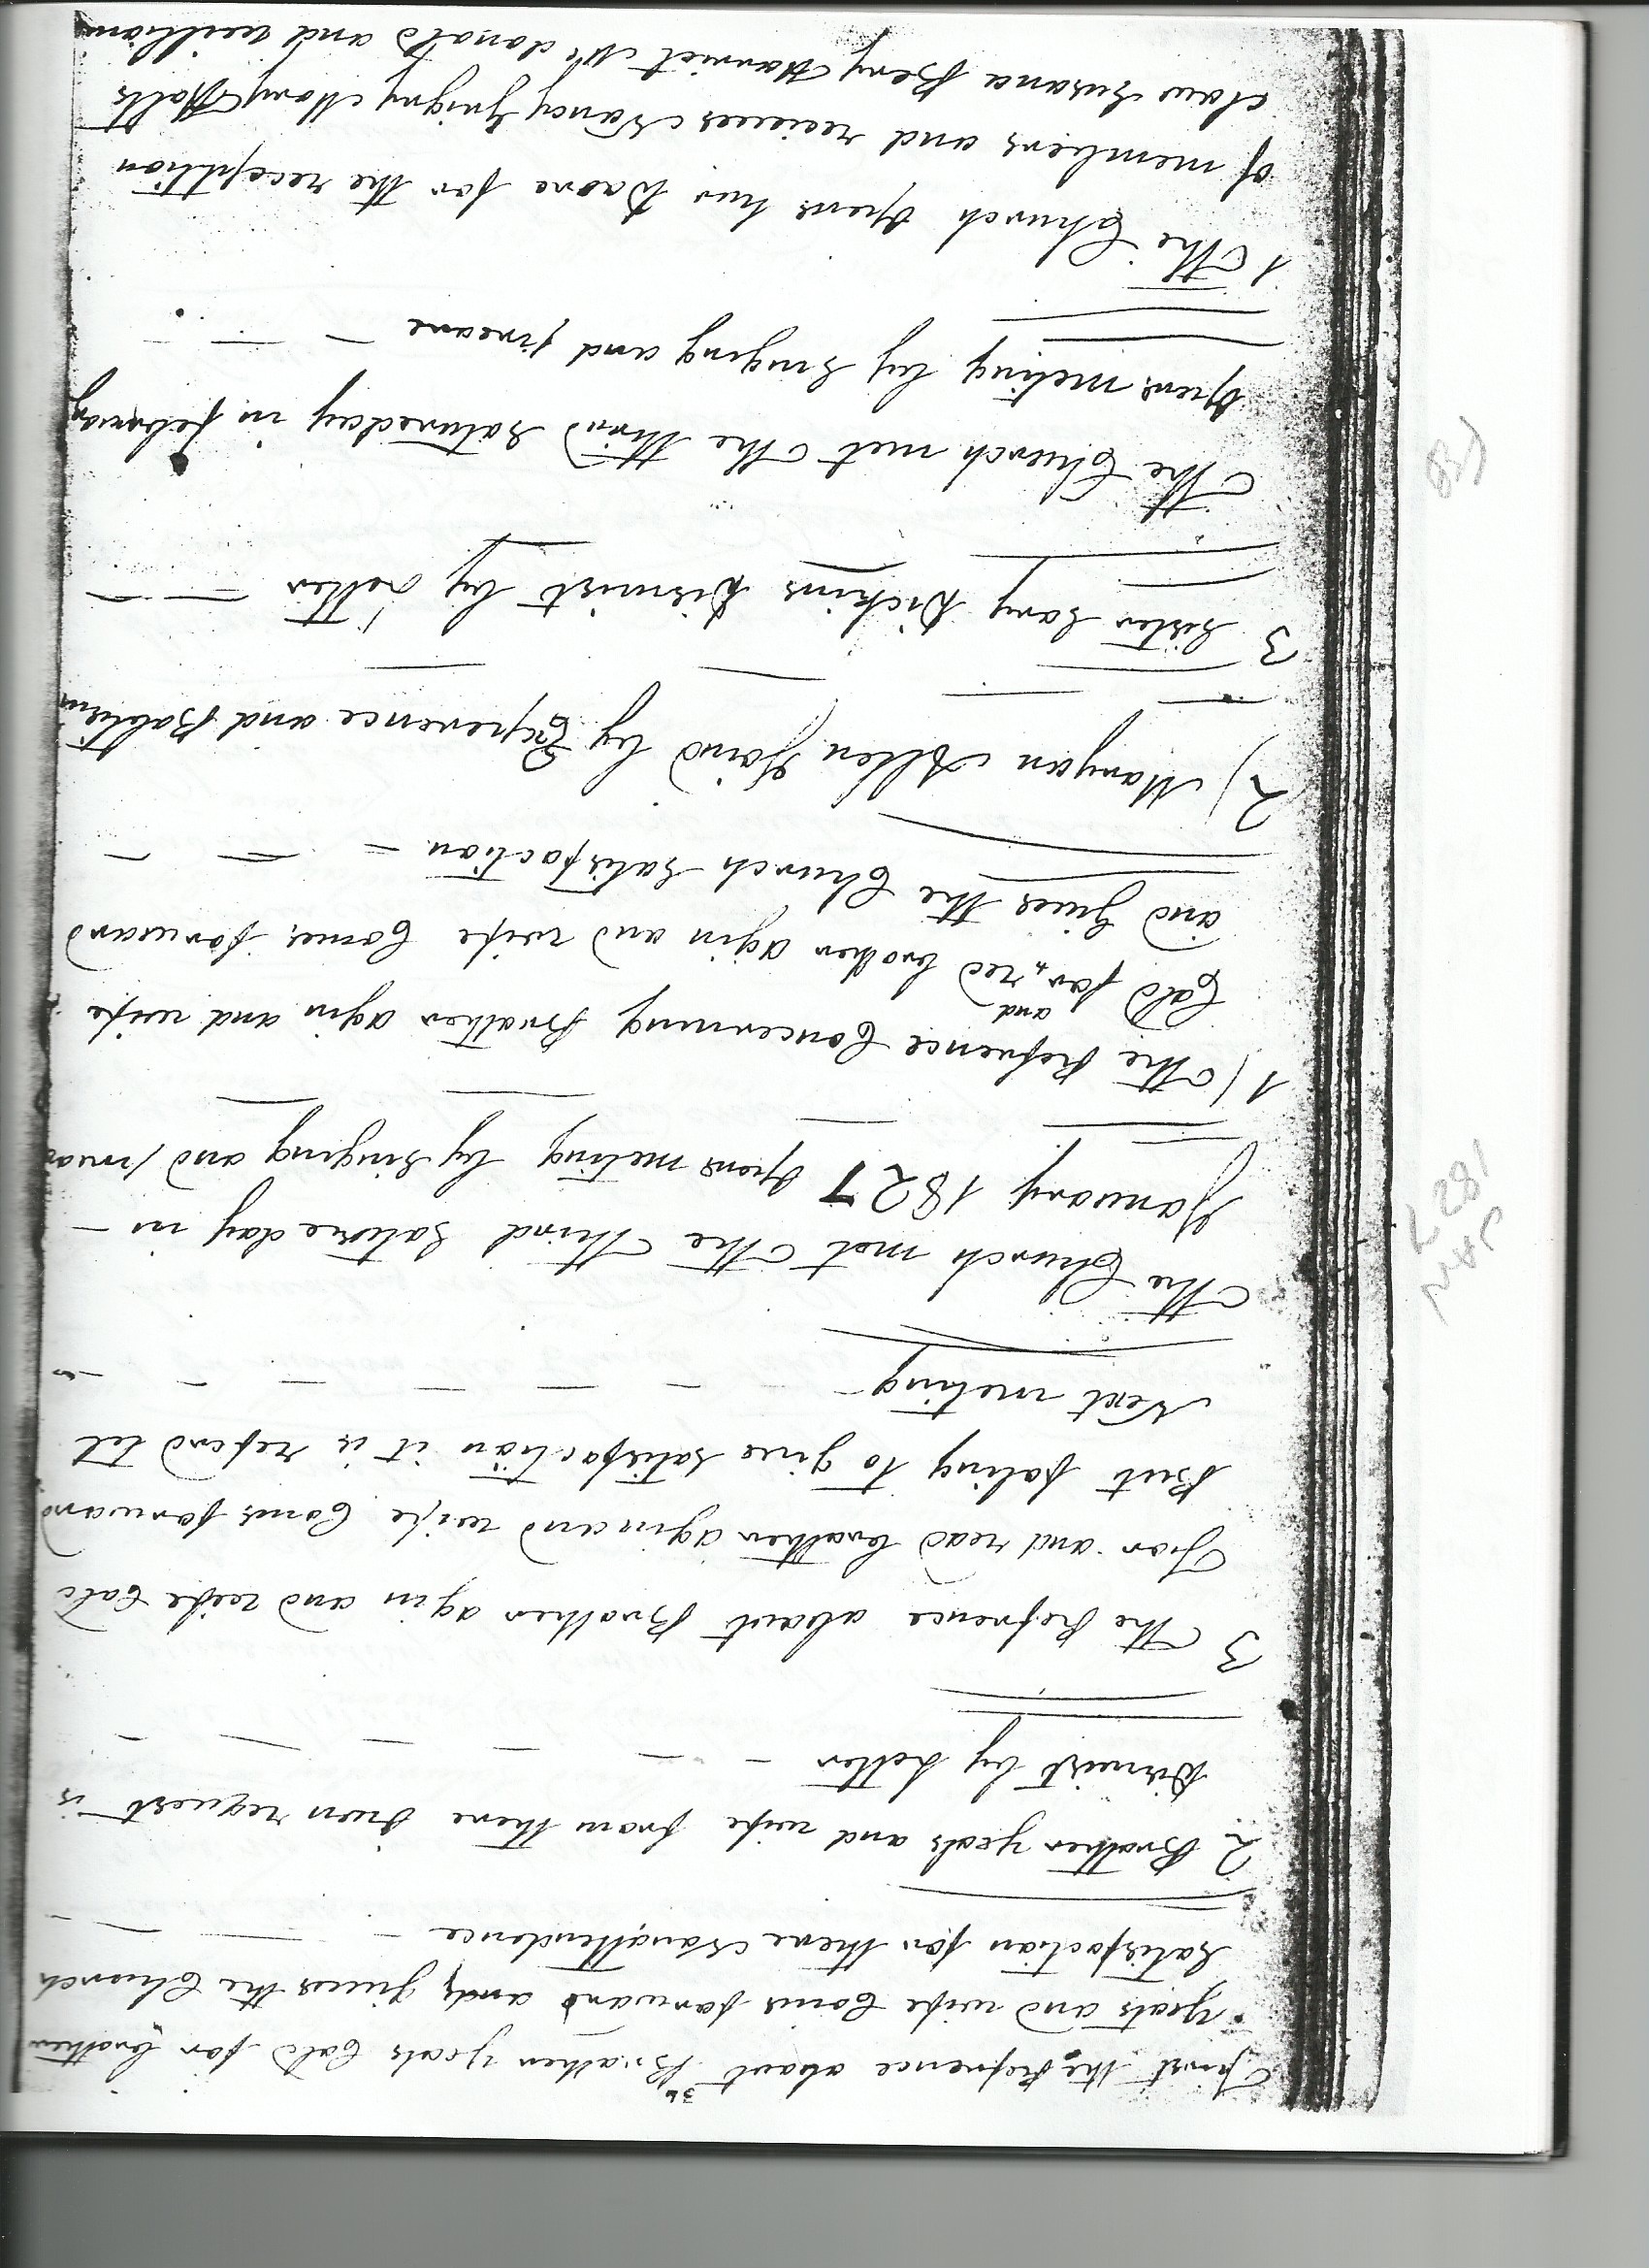 36
First the Refrence about Brother Yeats Cald for brother
Yeats and wife Coms forward and gives the Church
Satisfaction for there Nonattendence
2 Brother Yeats and wife from there own request is
Dismist by Letter
3 The Refrence about Brother agin and wife Cald
For and read brother agin and wife Coms forward
But faling to give satisfaction it is refend tel
Next meting
JAN
1827
The Church met the Third Satureday in
January 1827 opens meting by Singing and
1 The Refrence Concerning Brother agin and wife
Cald for and red brother agin and wife Comes forward
and Gives the Church Satisfaction
2 Maryan Allen Joind by Exprence and Babtism
3 Sister Sary Dickins Dismist by Letter
The Church met the third Satureday in february
opens meting by Singing and
1 The Church opens hur Doore for the reception
of members and recieves Nancy Mary
Susana Bery Harriet McDonald and william